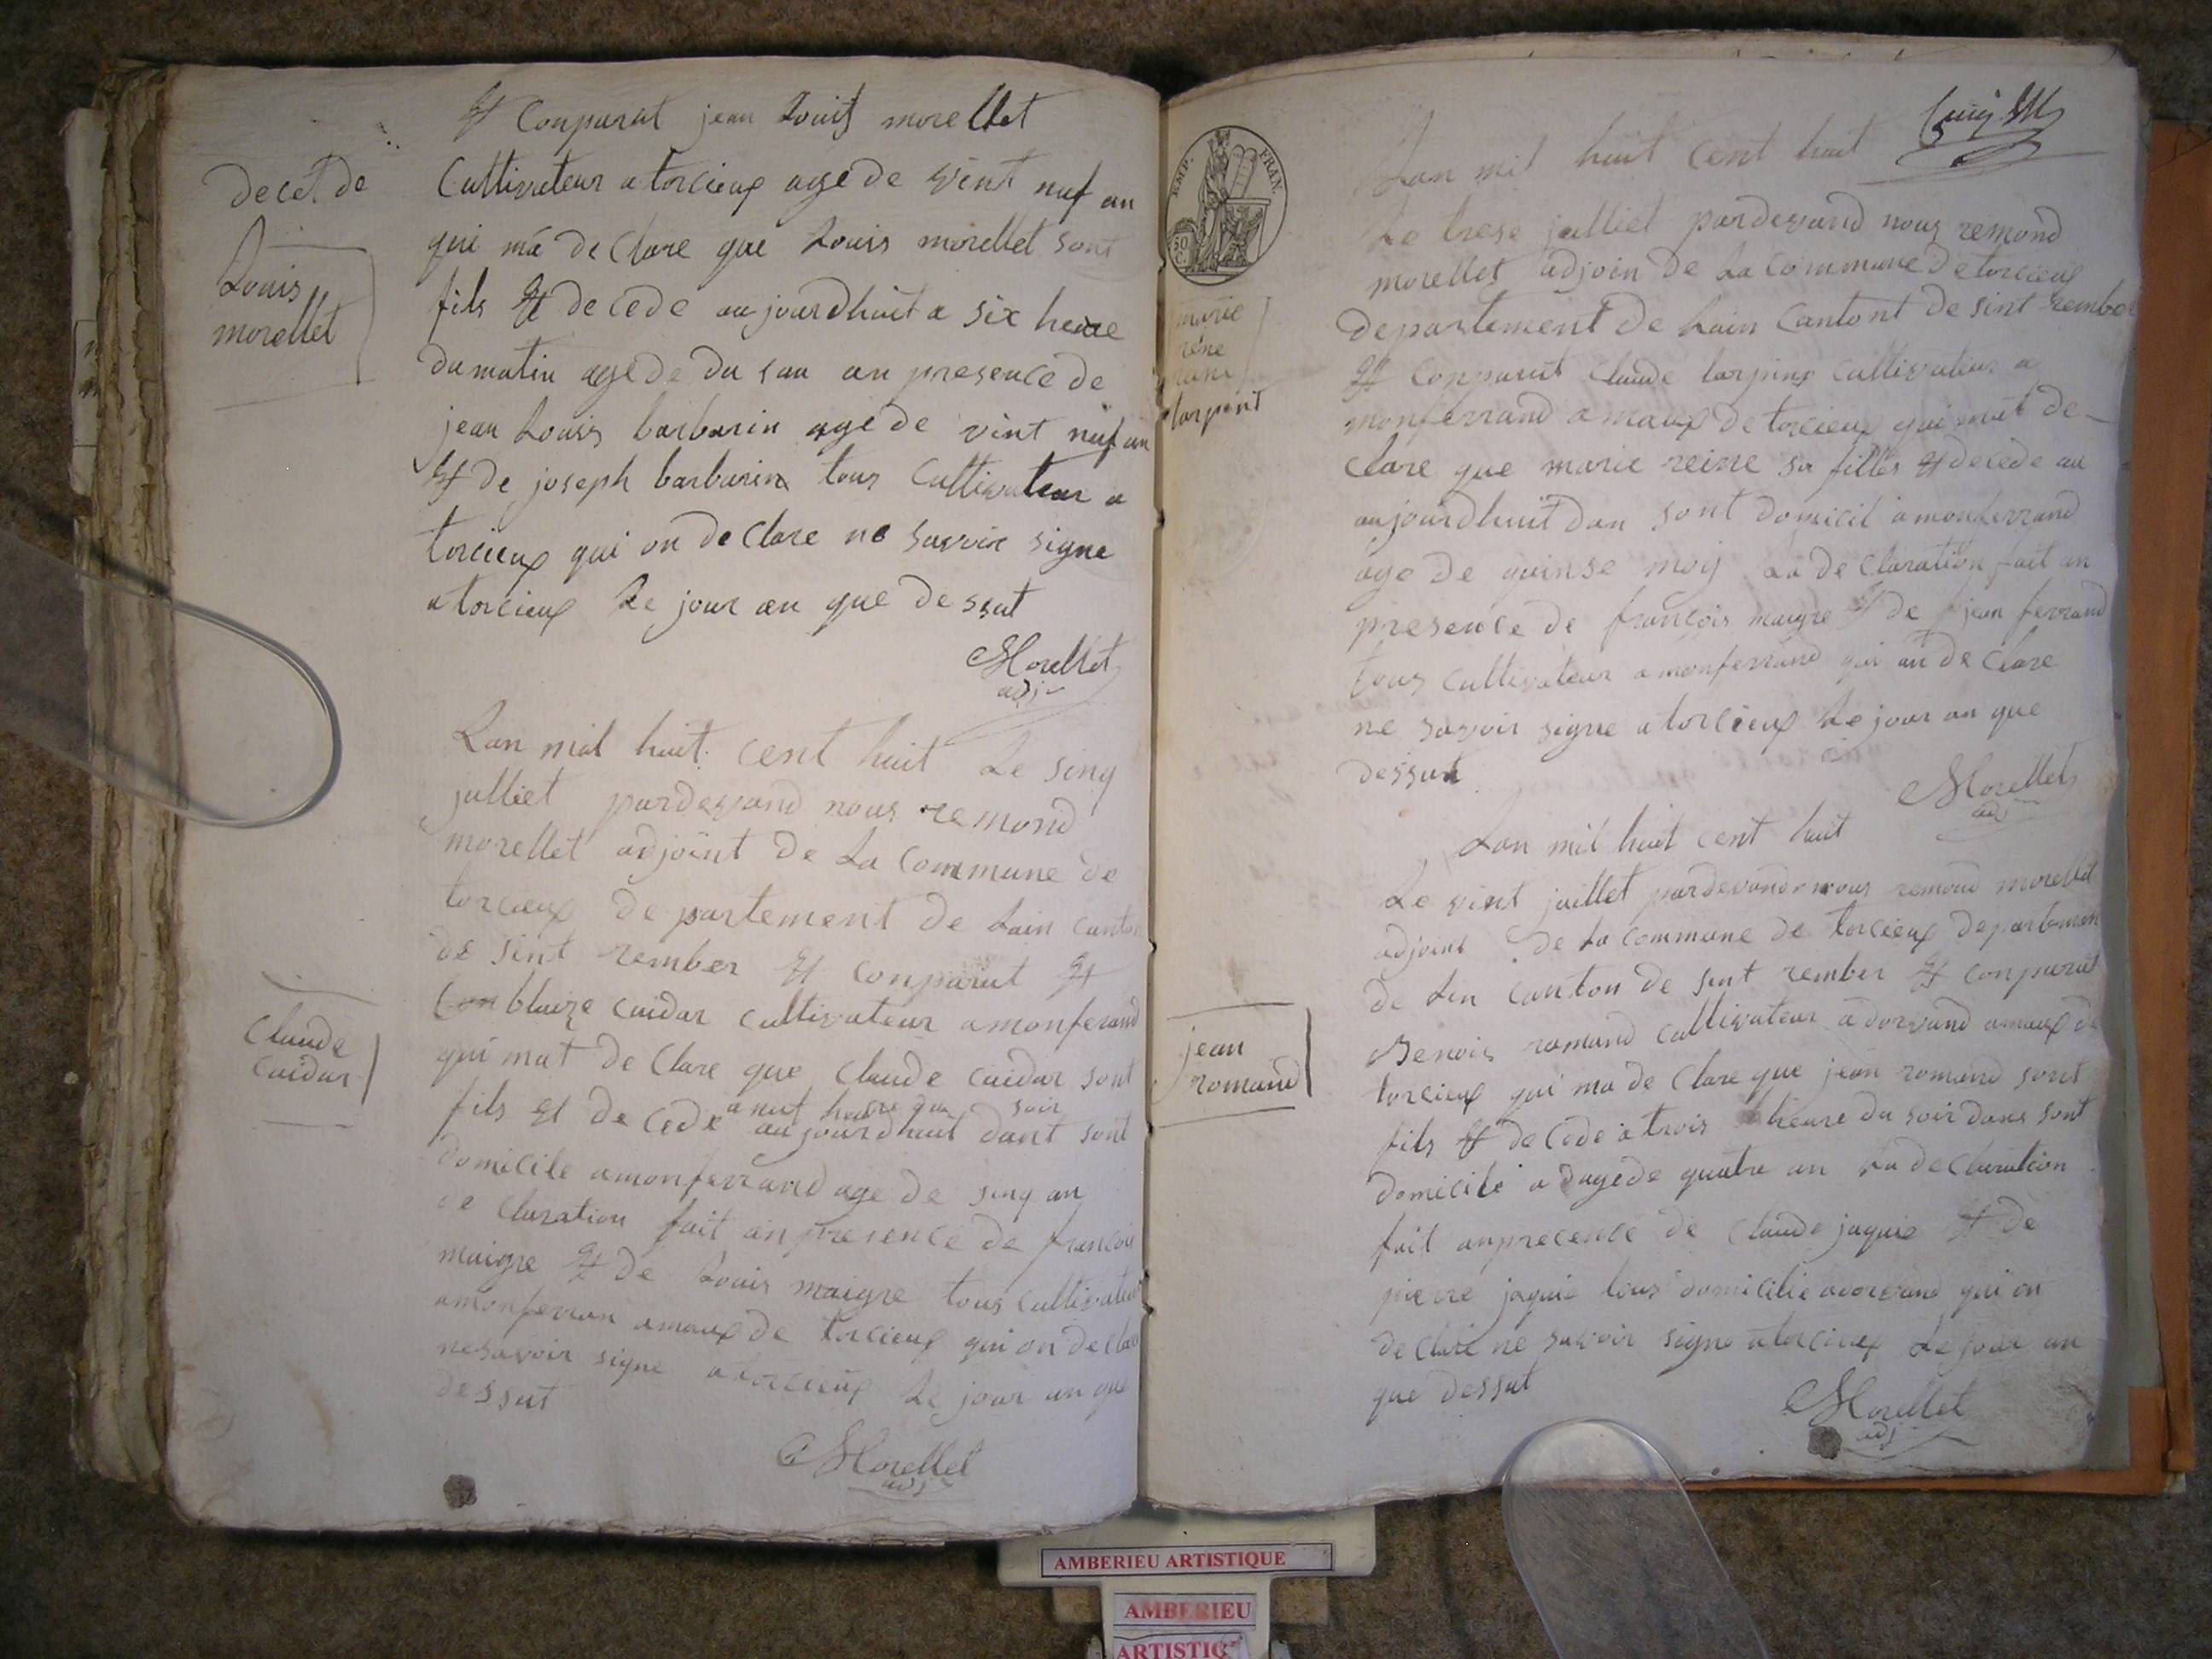 Et Conparut jean Louis morellet
decet de
Cultivateur a torcieux age de vint neuf an
qui ma de Clare que Louis morellet sont
Louis
morellet
fils Et de cede aujourdhuit a six heure
du matin age de du san an presence de
jean Louis barbarin age de vint neuf an
Et de joseph barbarin tous Cultivateur a
torcieux qui on de Clare ne savoir signe
a torcieux Le jour an que dessut
Morellet
adj
Lan mil huit cent huit Le sinq
julliet pardevand nous remond
morellet adjoint de La Commune de
torcieux departement de Lain canton
de sint rember Et conparut Et
Claude
Caidar
blaize caidar cultivateur a monferand
qui mat de Clare que Claude caidar sont
fils Et de Cede a neuf heure du soir aujourdhuit dant sont
domicile a monferrand age de sinq an
de Claration fait an presence de francois
maigre Et de Louis maigre tous cultivateur
a monferran amaux de torcieux qui on de clare
ne savoir signe a torcieux Le jour an que
dessut
Morellet
adj
EMP. FRAN.
50
C.
Lan mil huit cent huit
Le trese julliet pardevand nous remond
morellet adjoin de La Commune de torcieux
departement de Lain Cantont de sint rember
marie
rene
larpint
Et Conparut Claude larpin cultivateur a
monferrand amaux de torcieux qui mat de
Clare que marie reine sa filles Et decede au
aujourdhuit dan sont domicil a monferrand
age de quinse moy La de Claration fait an
presence de francois maigre Et de jean ferrand
tous cultivateur a monferrand qui an de Clare
ne savoir signe a torcieux Le jour an que
dessut
Morellet
adj
Lan mil huit cent huit
Le vint juillet pardevand nous remond morellet
adjoint de La commune de torcieux departemen
de Lin canton de sint rember Et conparut
jean
romand
Benois romand cultivateur a dorvand amaux de
torcieux qui ma de Clare que jean romand sont
fils Et de Cede a trois heure du soir dans sont
domicile a dagede quatre an La declaration
fait anprecence de Claude jaquie Et de
pierre jaquie tous domicilie a dorvand qui on
de Clare ne savoir signe a torcieux Le jour an
que dessut
Morellet
adj
AMBERIEU ARTISTIQUE
AMBERIEU
ARTISTIQ